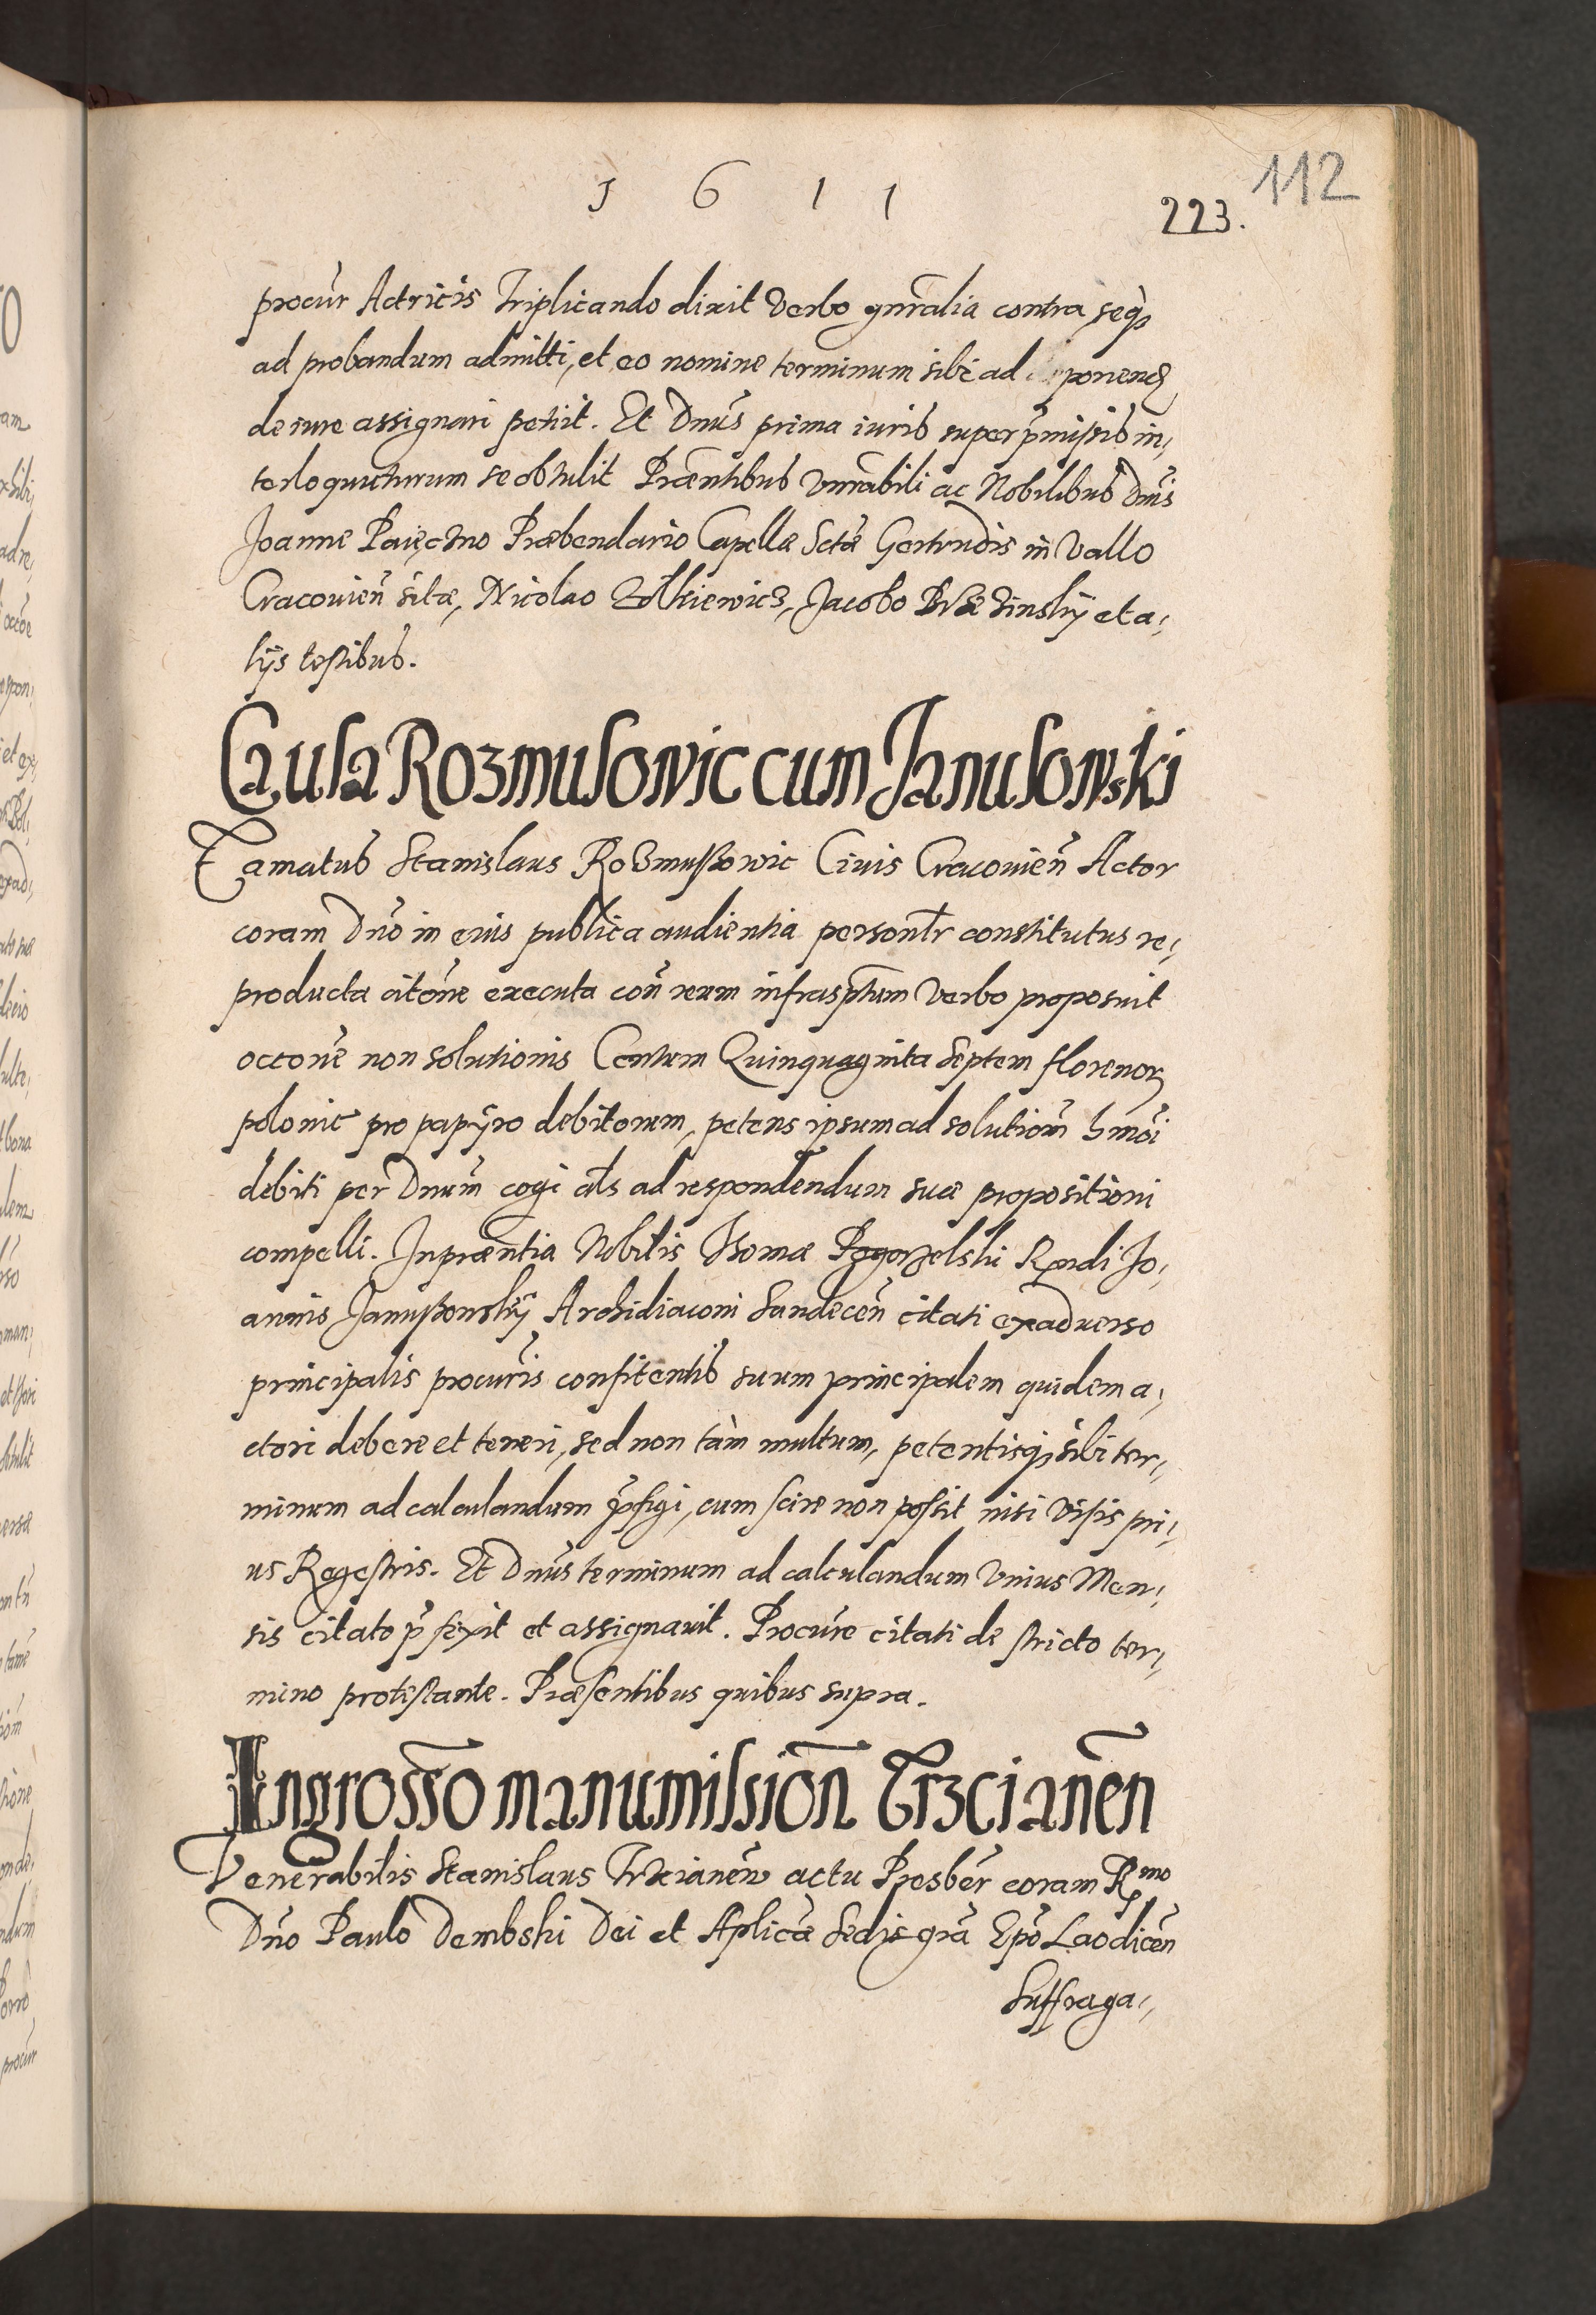 1 6 1 1
223.
112
procur̃ Actricis Triplicando dixit verbo gnr̃alia contra seqȝ
ad probandum admitti, et eo nomine terminum sibi ad ponend
de iure assignari petiit. Et Dnũs prima iuris super p̃missis in,
terloquuturum se obtulit Præntibus Vnr̃abili ac Nobilibus Dnĩs
Joanne Paięcżno Præbendario Capellæ Sctæ Gertrudis in Vallo
Cracouień sitæ, Nicolao Zołkiewicz, Jacobo et a,
lijs testibus.
Causa Rozmusowic cum Janusowski
Famatus Stanislaus Rozmussowic Ciuis Cracouień Actor
coram Dnõ in eius publica audientia personl̃r constitutus re,
producta citõne executa coñ reum infrasp̃tum verbo proposuit
occõne non solutionis Centum Quinquaginta Septem floreno[rum]
polonic̃ pro papyro debitorum, petens ipsum ad solutiom̃ hmõi
debiti per Dnum̃ cogi als̃ ad respondendum suæ propositioni
compelli. In præntia Nobilis Thomæ Pogorzelski Rñdi Jo,
annis Janussowskÿ Archidiaconi Sandeceñ citati ex aduerso
principalis procuris̃ confitentis suum principalem quidem a,
ctori debere et teneri, sed non tàm multum, petentisqȝ sibi ter,
minum ad calculandum p̃figi, cum scire non possit nisi visis pri,
us Regestris. Et Dnũs terminum ad calculandum Vnius Men,
sis citato p̃fixit et assignauit. Procurẽ citati de stricto ter,
mino protestante. Præsentibus quibus supra.
Ingrosso manumission̄ Trzcianeñ
Venerabilis Stanislaus Trzcianeñ actu Presber̃ coram R[mo]
Dnõ Paulo Dembski Dei et Aplicæ Sedis grã Epõ Laodiceñ
Suffraga,